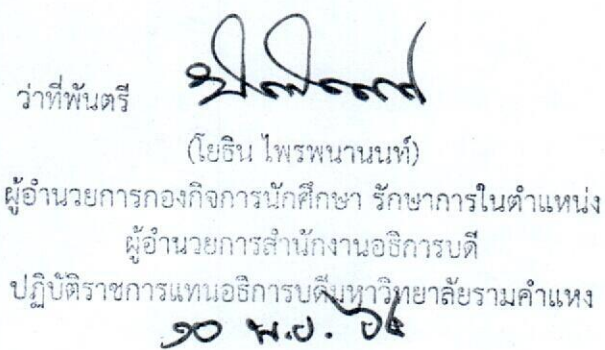 ว่าที่พันตรี
(โยธิน ไพรพนานนท์)
ผู้อำนวยการกองกิจการนักศึกษา รักษาการในตำแหน่ง
ผู้อำนวยการสำนักงานอธิการบดี
ปฏิบัติราชการแทนอธิการบดีมหาวิทยาลัยรามคำแหง
๑๐ พ.ย. ๖๔